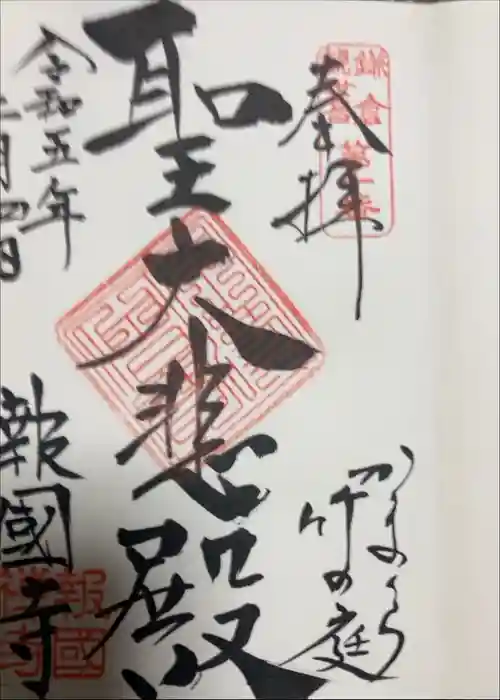 鎌倉
奉拝
かまくら
竹の庭
聖大悲殿
令和五年
月四日
報國寺
報國
禅寺